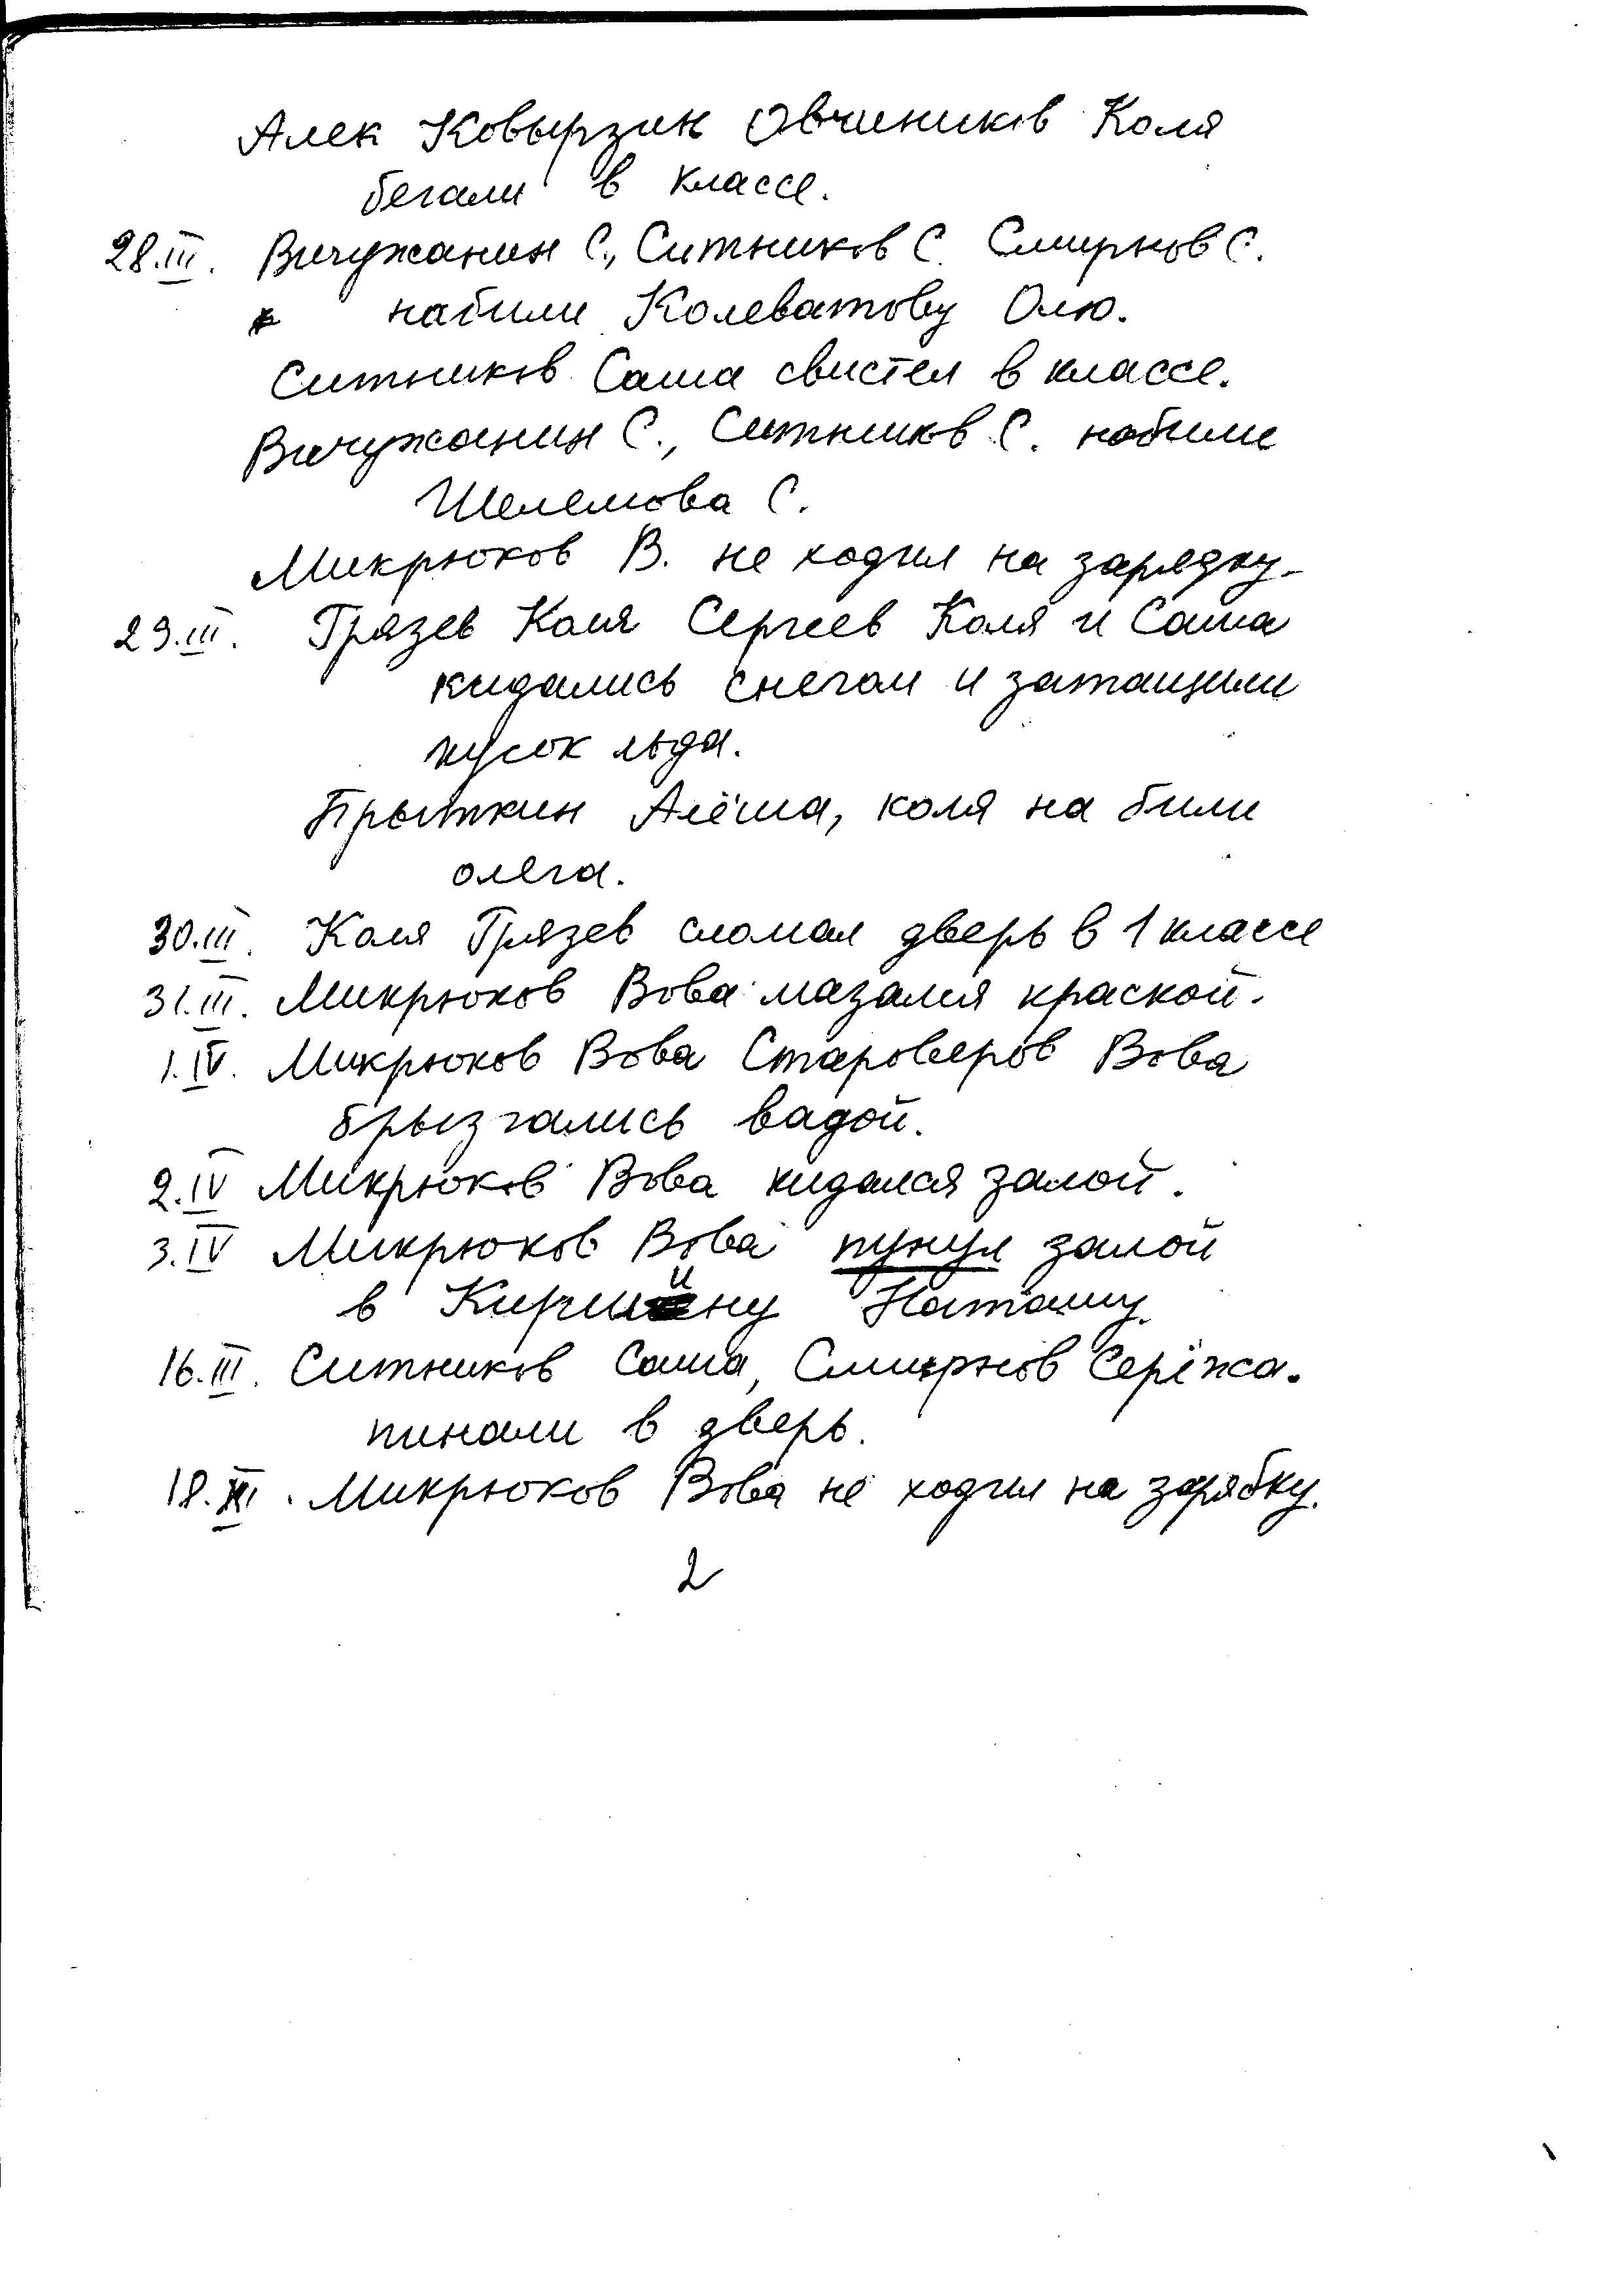 Алек Ковырзин Овчиников Коля
бегали в классе.
28.III. Вичужанин С., Ситников С. Смирнов С.
набили Колеватову Олю.
Ситников Саша свистел в классе.
Вичужанин С., Ситников С. набили
Шелемова С.
Микрюков В. не ходил на зарядку.
29.III. Грязев Коля Сергеев Коля и Саша
кидались снегом и затащили
кусок льда.
Прыткин Алёша, коля на били
олега.
30.III. Коля Грязев сломал дверь в 1 классе
31.III. Микрюков Вова мазался краской.
1.IV. Микрюков Вова Староверов Вова
брызгались вадой.
2.IV Микрюков Вова кидался залой.
3.IV Микрюков Вова пунул залой
в Киршину Наташу.
16.III. Ситников Саша, Смирнов Серёжа.
пинали в дверь.
18.III. Микрюков Вова не ходил на зарябку.
2